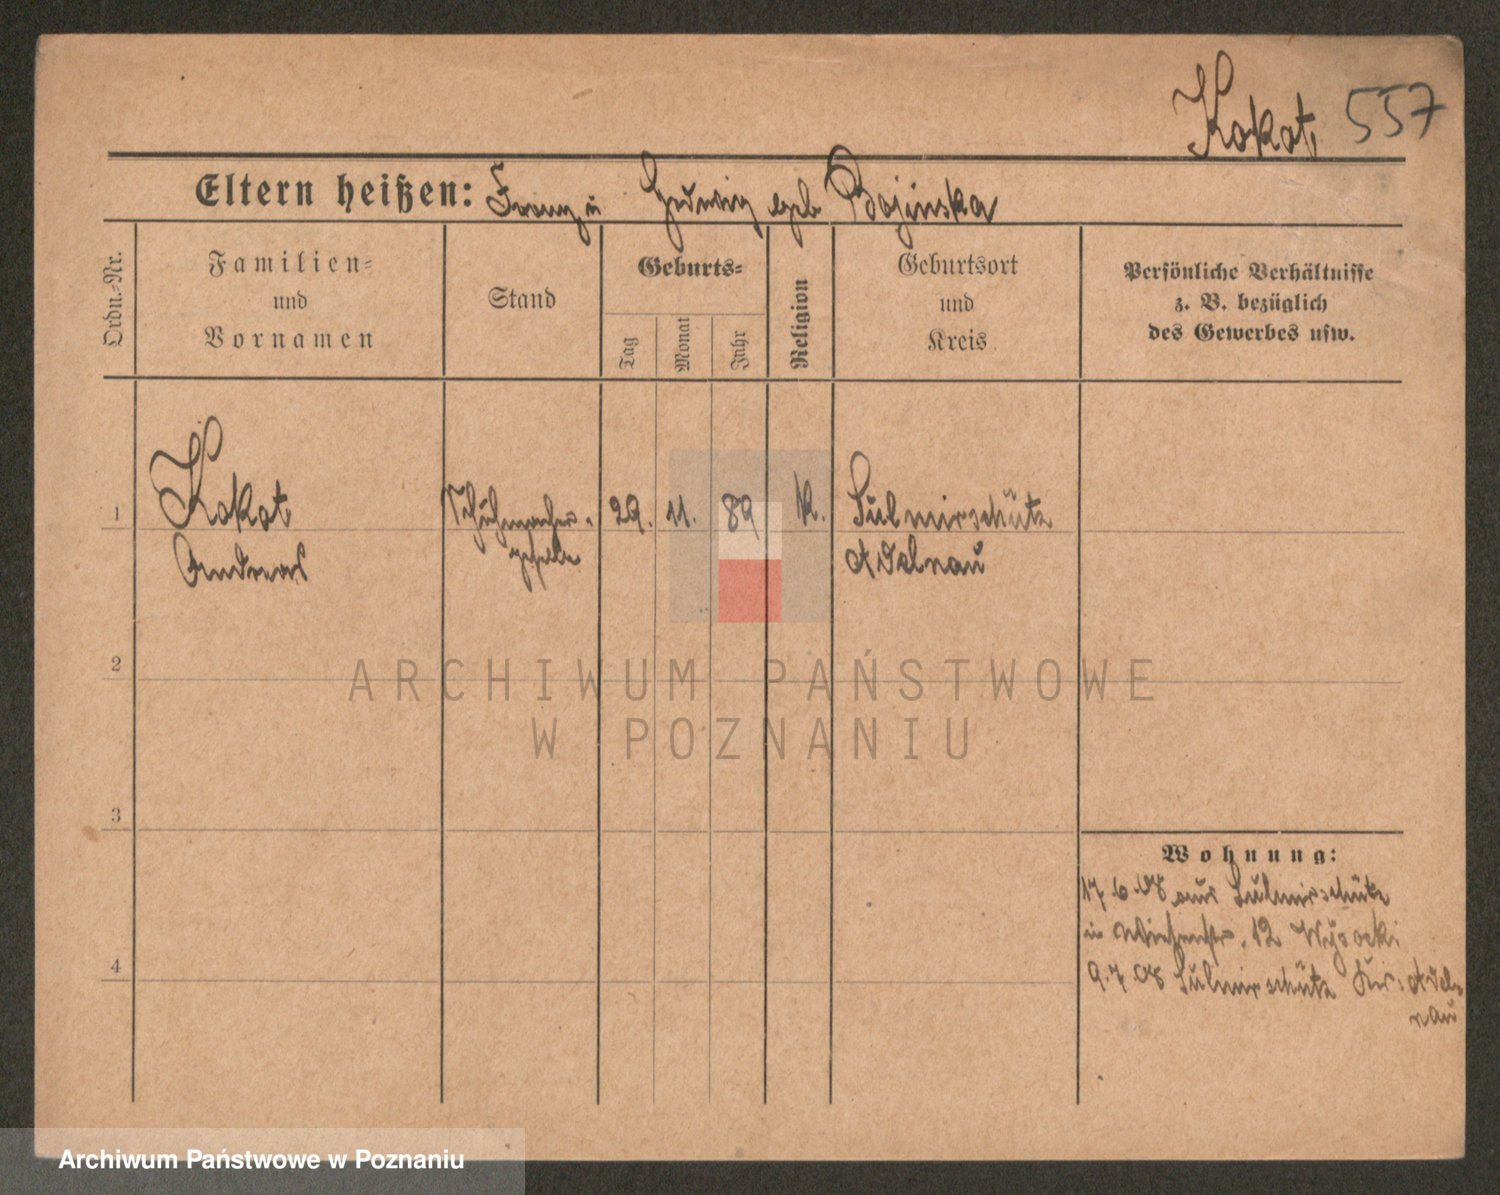 Kokot, 557
Eltern heißen: Franz u Hedwig geb Bojinska
Ordn.-Nr.
Familien-
und
Vornamen
Stand
Geburts-
Tag
Monat
Jahr
Religion
Geburtsort
und
Kreis
Persönliche Verhältnisse
z. B. bezüglich
des Gewerbes usw.
1
Kokot
Andreas
Schuhmacher-
geselle
29. 11. 89 K.
Sulmirschütz
Adelnau
2
ARCHIWUM PAŃSTWOWE
W POZNANIU
3
4
Wohnung:
17 6 08 aus Sulmirschütz
12 Wysocki
9.7 08 Sulmirschütz Kr: Adel
nau
Archiwum Państwowe w Poznaniu